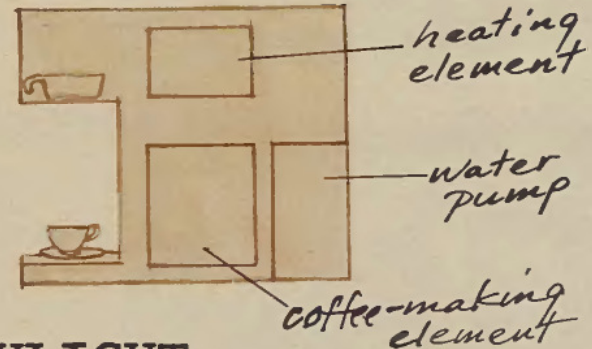 heating
element
water
pump
coffee-making
element